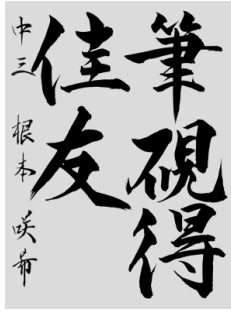 筆硯得
佳友
中三 根本 咲希